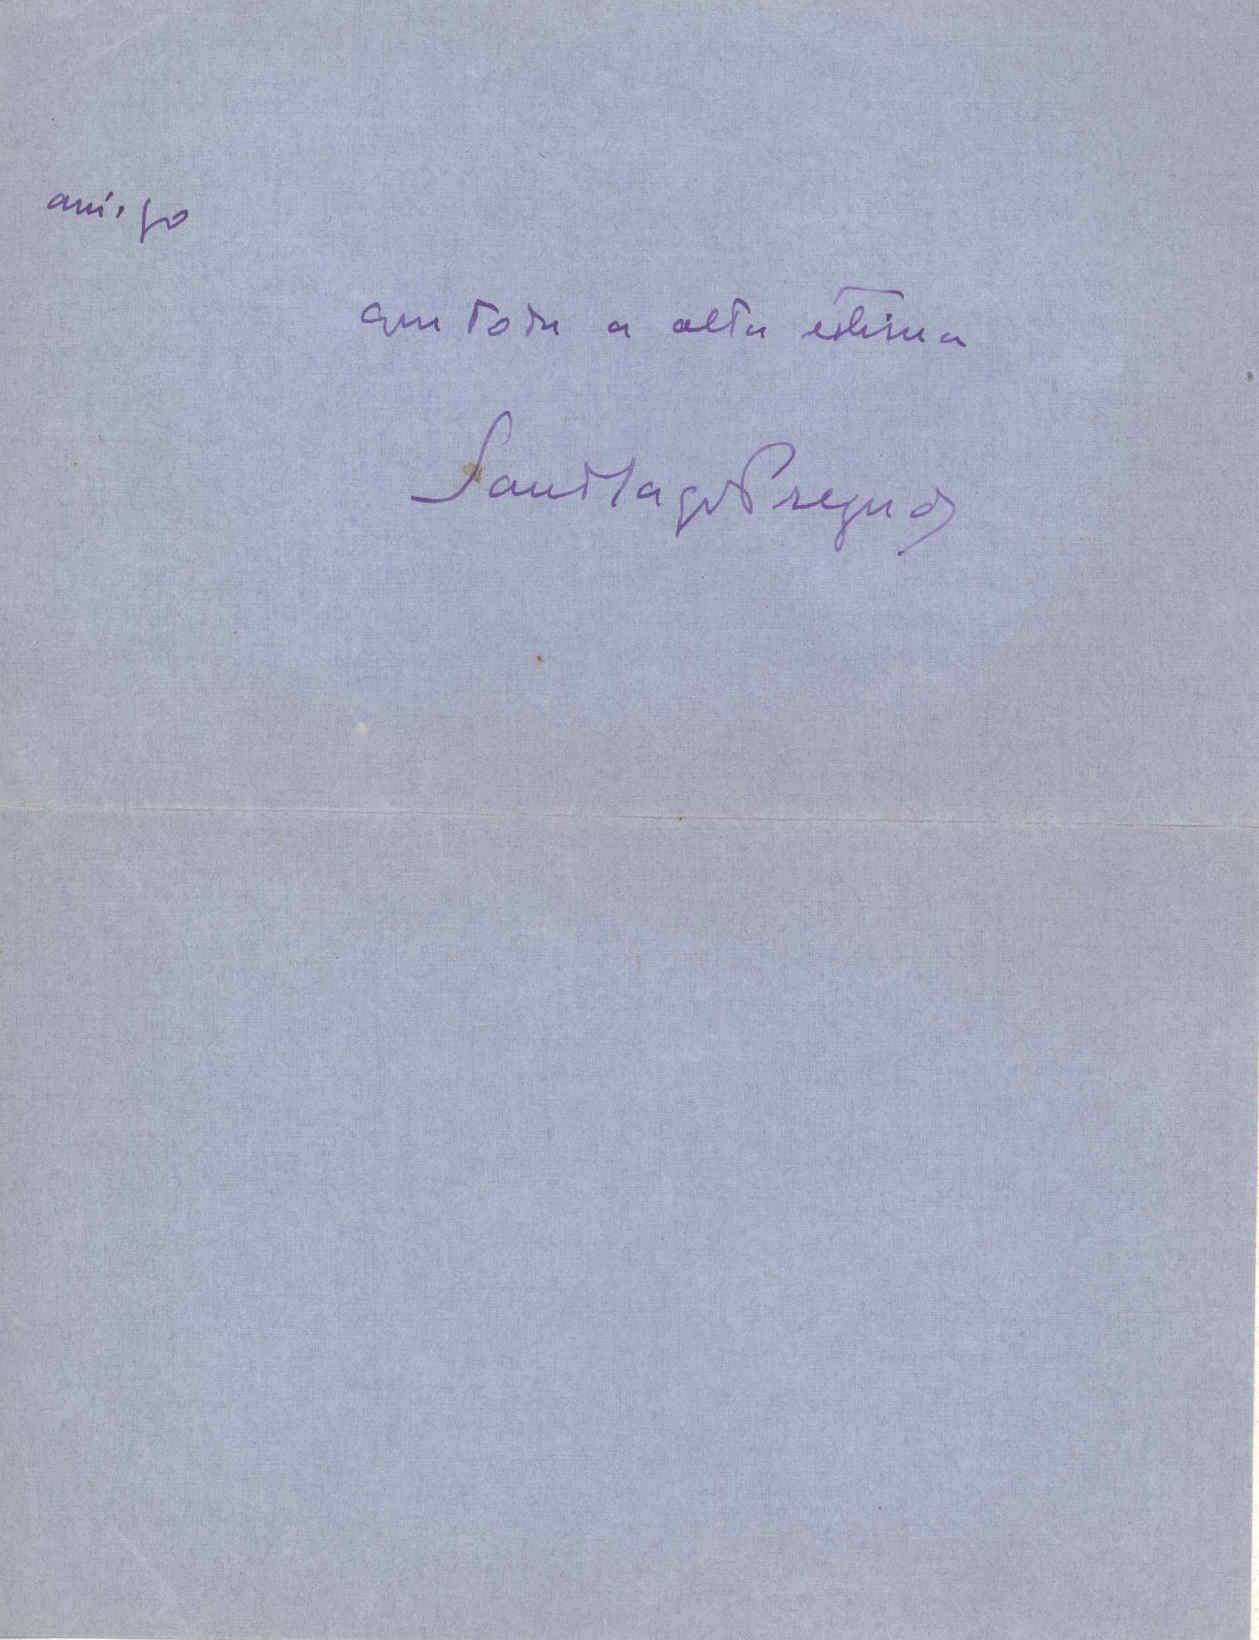 amigo
com toda a alta estima
Santiago Pregnos